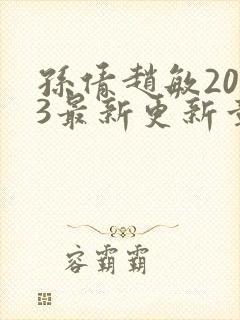 孫倩趙敏20
3最新更新章
容霸霸